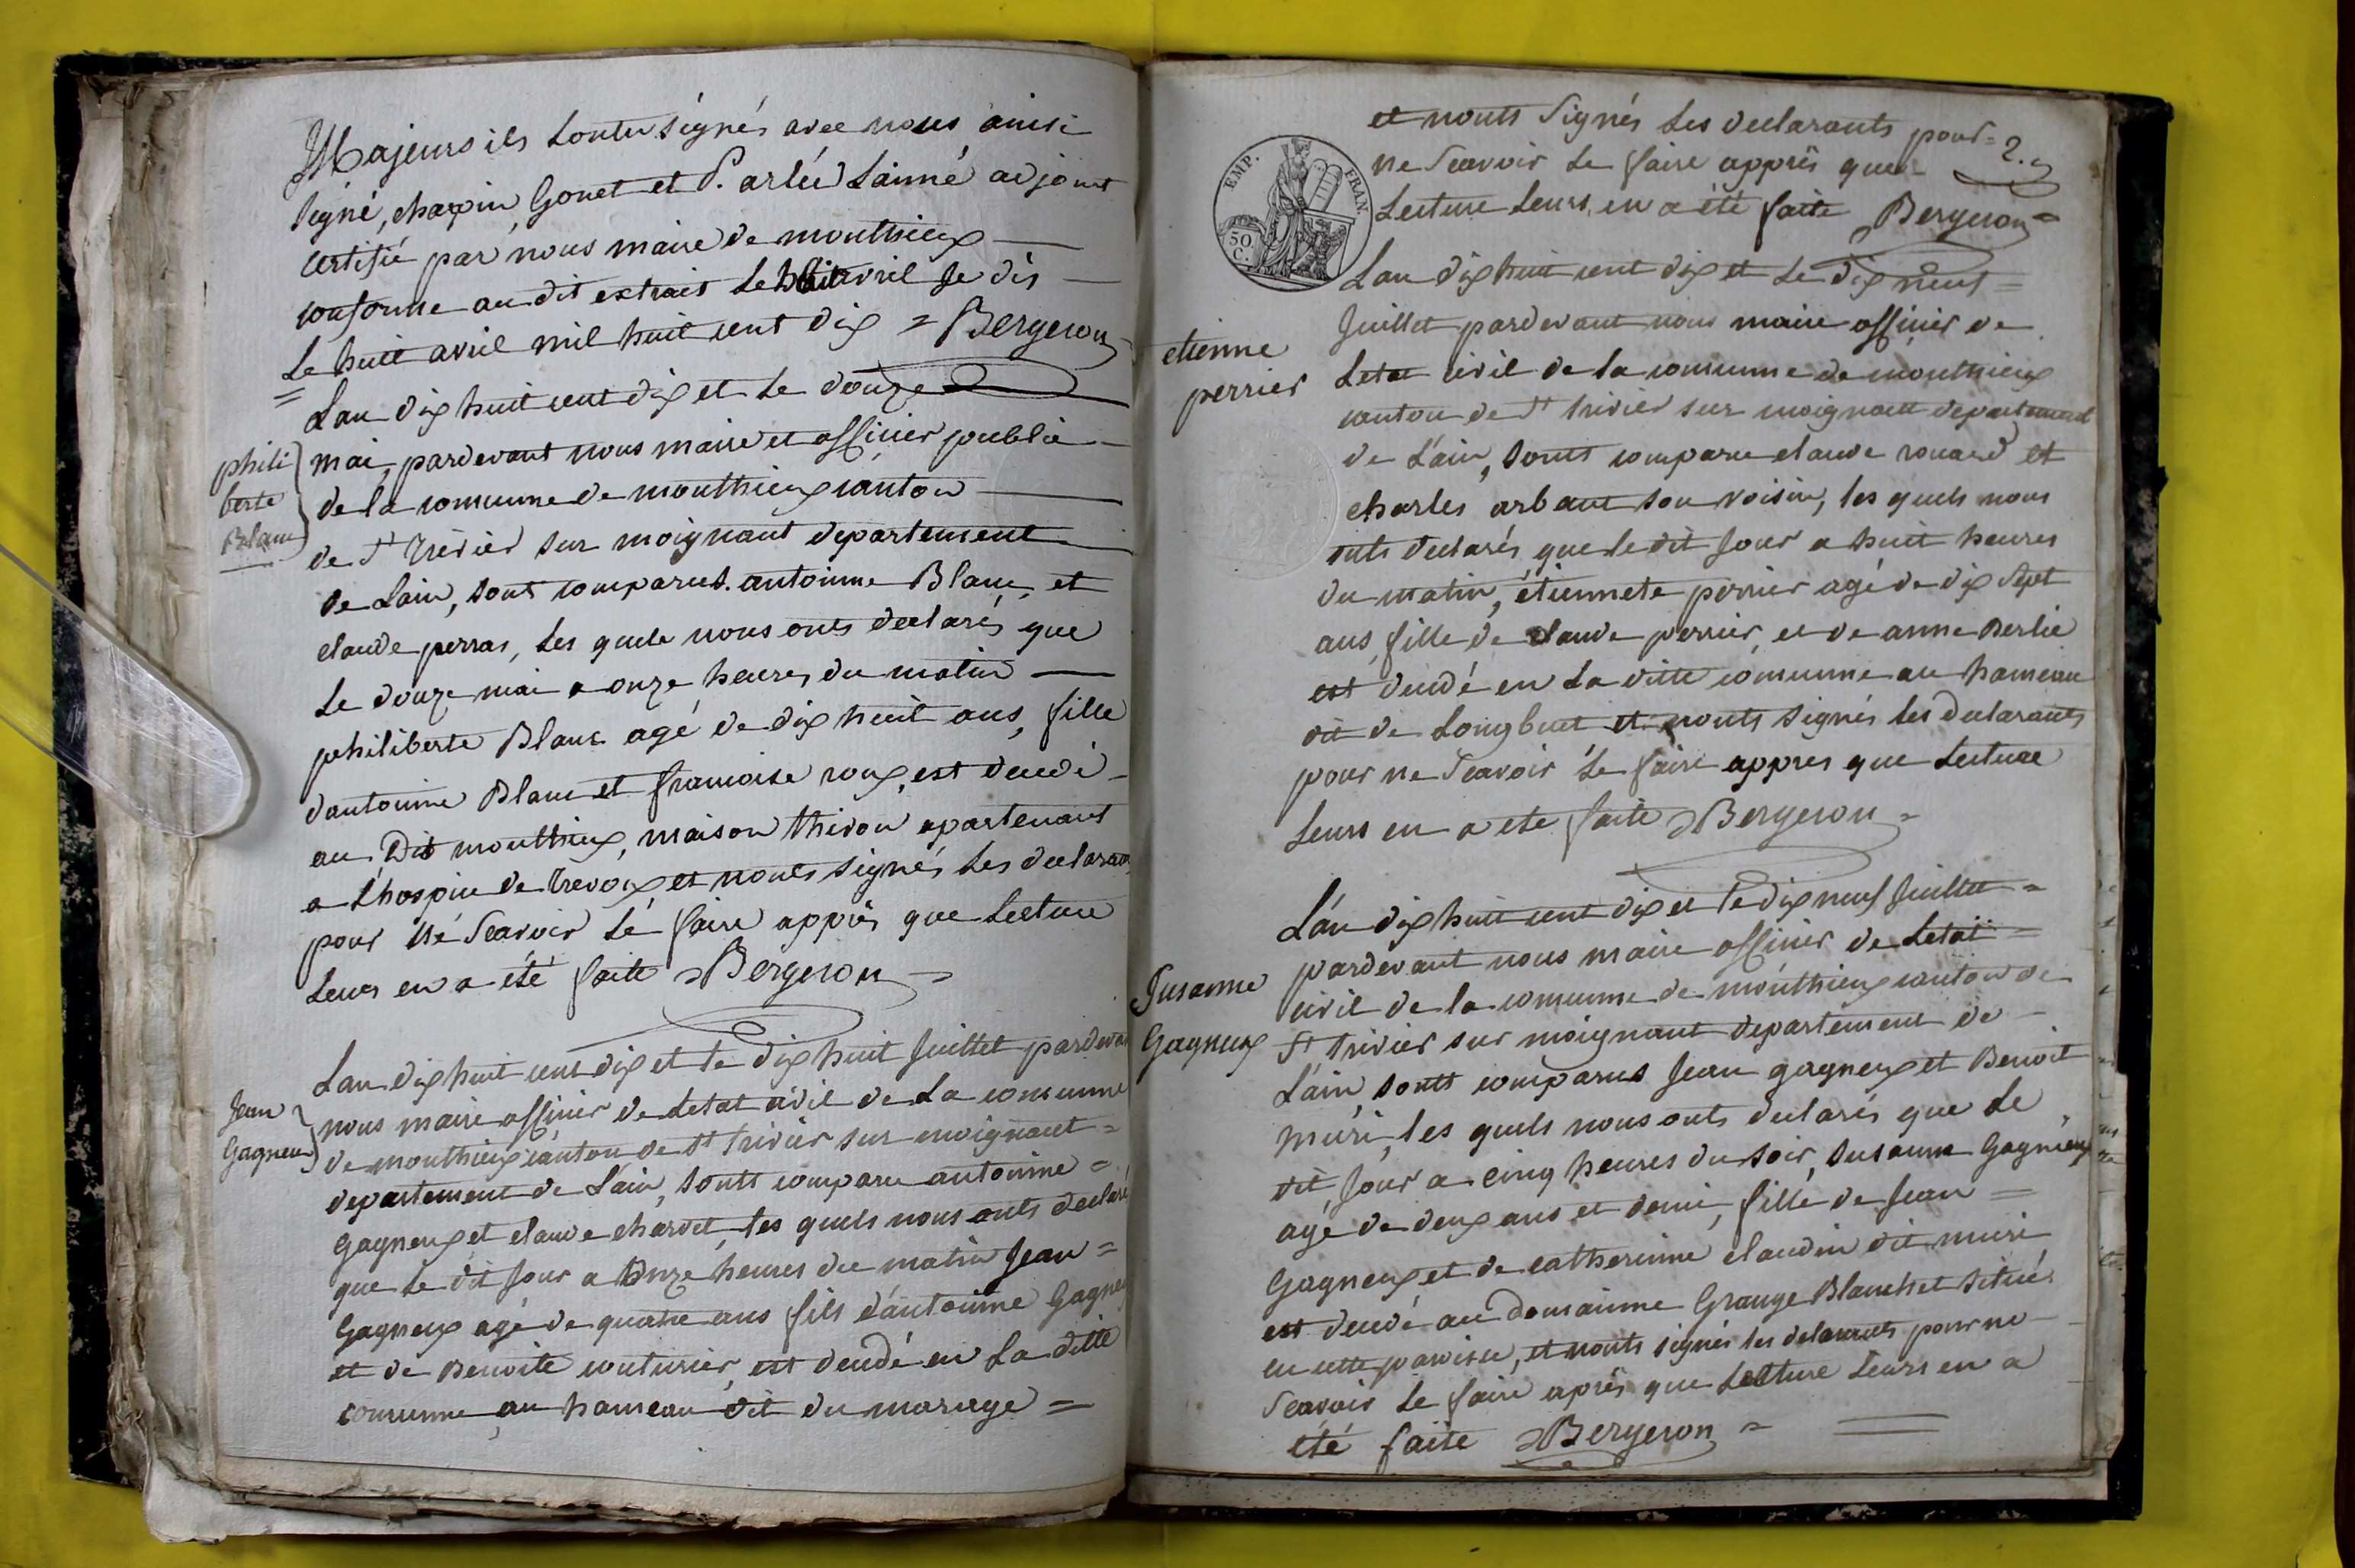 Majeurs ils sonter signés avec nous ainsi
signé, chapin, Gonet et P. arlés L'ainné adjoint
certifié par nous maire de monthieux
conforme au dit extrait le avril je dis
Le huit avril mil huit cent dix = Bergeron
Lan dix huit cent dix et le douze
phili
berte
Blanc
mai, pardevant nous maire et officier public
de la comunne de monthieux canton
de St trévier sur moignant departement
de Lain, sont comparus antoinne Blanc, et
claude perras, les quels nous onts declarés que
Le douze mai a onze heures du matin
philiberte Blanc agé de dix huit ans, fille
dantoinne Blanc et francoise roux, est decedé
au Dit monthieux, maison thivon apartenant
a Lhospice de trevoux et nonts signés Les declarants
pour né Scavoir Lé faire apprès que Lecture
Leurs en a été faite = Bergeron =
Lan dix huit cent dix et le dix huit Juillet pardevant
Jean
Gagneux
nous maire officier de Letat civil de La comunne
de monthieux canton de St trivier sur moignant =
departement de Lain, sonts comparu antoinne =
Gagneux et claude charvet, les quels nous onts declaré
que le dit Jour a onze heures du matin Jean =
Gagneux agé de quatre ans fils d'antoinne Gagneux
et de Benoite couturier, est decedé en La ditte
comunne au hameau dit du mariage =
et nonts Signés Les declarants pour =
2.
ne Scavoir Le faire apprès que
Lecture Leurs en a été faite Bergeron =
EMP. FRAN.
50 C.
Lan dix huit cent dix et Le dix neuf =
etienne
perrier
Juillet pardevant nous maire officier de
Letat civil de la comunne de monthieux
canton de St trivier sur moignant departement
de L'ain, sonts comparu claude rouard et
charles arbant son voisin, les quels nous
onts declarés que le dit Jour a huit heures
du matin, étiennete perrier agé de dix Sept
ans, fille de claude perrier, et de anne Berlie
est decedé en La ditte comunne au hameau
dit de Longbuet et nonts signés les declarants
pour ne Scavoir Le faire appres que Lecture
Leurs en a eté faite = Bergeron =
L'an dix huit cent dix et le dix neuf Juillet =
pardevant nous maire officier de Letat =
Susanne
Gagneux
civil de la comunne de monthieux canton de
St trivier sur moignant departement de
L'ain, sonts comparus Jean gagneux et Benoit
muri, les quels nous onts declarés que Le
dit Jour a cinq heures du soir, Susanne Gagneux
agé de deux ans et demi, fille de Jean =
Gagneux et de catherinne claudin dit muri
est decedé au domainne Grange Blanchet situé
en cette paroisse, et nonts signés les declarants pour ne
Scavoir Le faire après que Lecture Leurs en a
été faite = Bergeron =